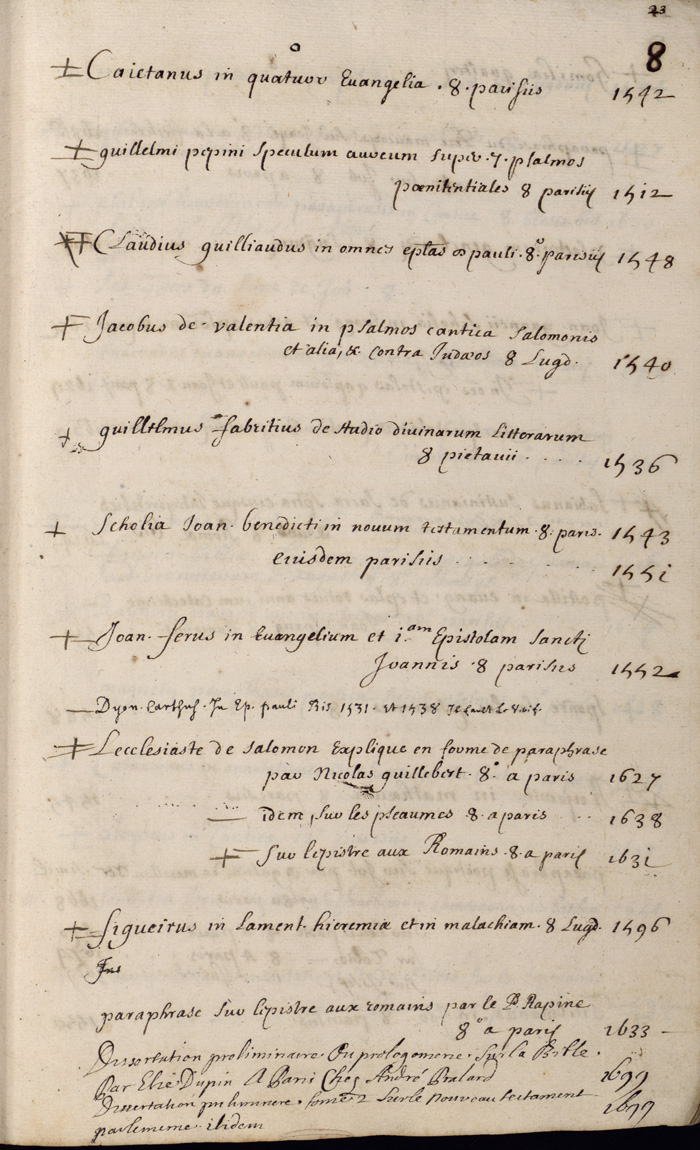 23
8
Caietanus in quatuor Euangelia . 8° parisiis 1542
guillelmi pepini speculum aureum super .7. psalmos
pœnitentiales 8 parisiis 1512
Claudius guilliaudus in omnes eplas pauli . 8° parisiis 1548
Jacobus de valentia in psalmos cantica Salomonis
et alia, & contra Iudæos 8 Lugd. 1540
guillelmus fabritius de studio diuinarum litterarum
8 pictauii .... 1536
Scholia Ioan. benedicti in nouum testamentum . 8 paris. 1543
eiusdem parisiis .... 1551
Joan. ferus in Euangelium et i.am Epistolam Sancti
Joannis . 8 parisiis 1552
Dyon. Carthus. In Ep. pauli Bis 1531. et 1538
Lecclesiaste de Salomon Explique en forme de paraphrase
par Nicolas guillebert . 8° a paris 1627
idem, sur les pseaumes 8 . a paris .. 1638
Sur lepistre aux Romains . 8 . a paris 1631
figueirus in Lament. hieremiæ et in malachiam . 8 Lugd. 1596
paraphrase sur lepistre aux romains par le P. Rapine
8° a paris 1633
Dissertation preliminaire. Ou prolegomene. Sur la Bible.
Par Elie Dupin A Paris Chez André Pralard 1699
Dissertation preliminere . tome 2 Sur le nouveau testament
par le meme . ibidem 1699